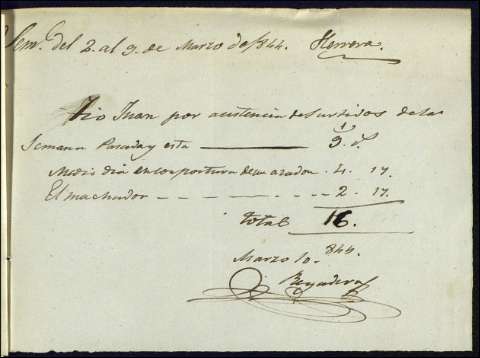 Sem.ª del 2 al 9. de Marzo de 1844. Herrera.
Tio Juan por asistencia de surtidos de la
Semana Pasada y esta 9.
Medio dia en conpostura de un azadon . 4. 17.
El machador 2. 17.
total 16.
Marzo 10. 844.